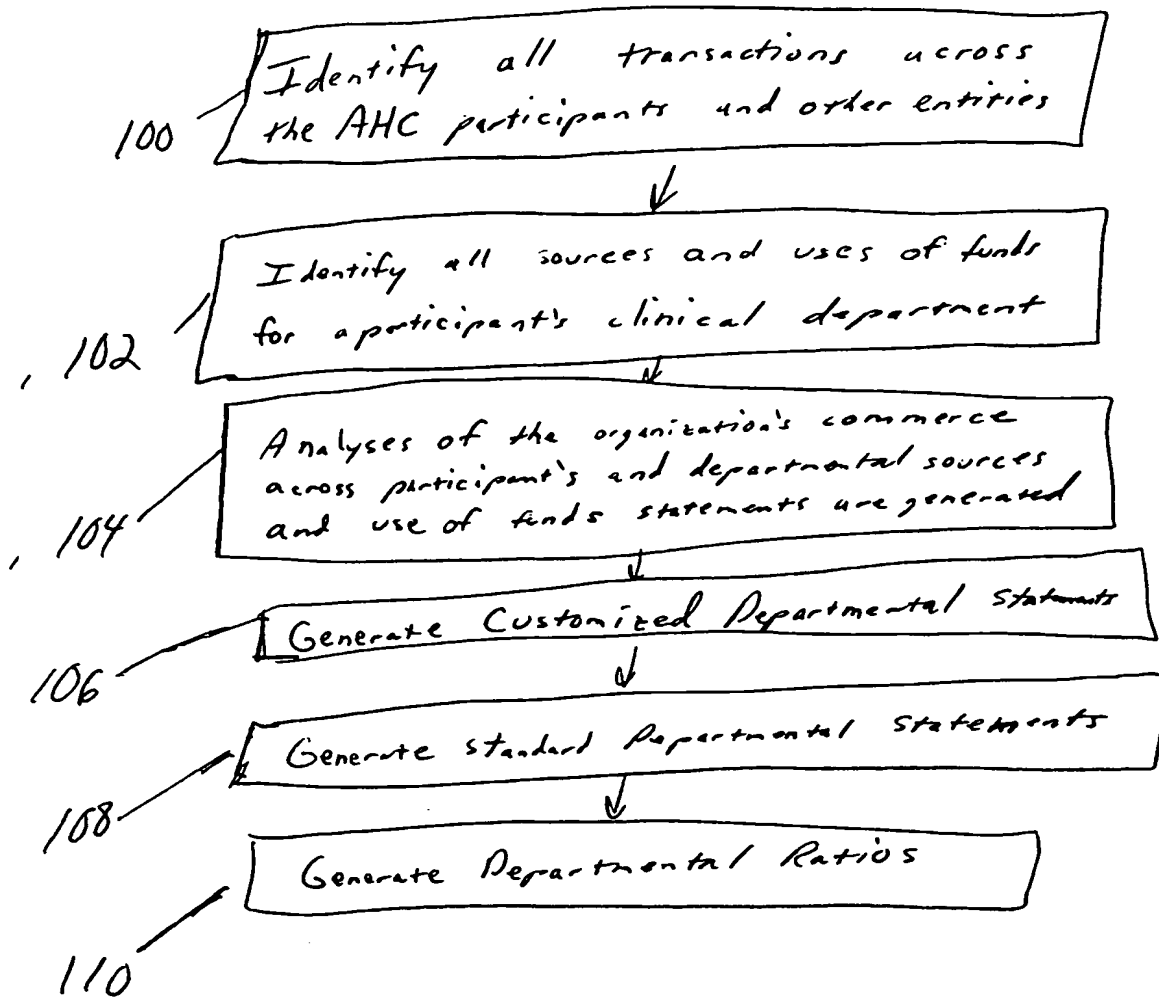 Identify all transactions across
the AHC participants and other entities
100
Identify all sources and uses of funds
for a participant's clinical department
, 102
Analyses of the organization's commerce
across participant's and departmental sources
and use of funds statements are generated
, 104
Generate Customized Departmental Statements
106
Generate Standard Departmental Statements
108
Generate Departmental Ratios
110